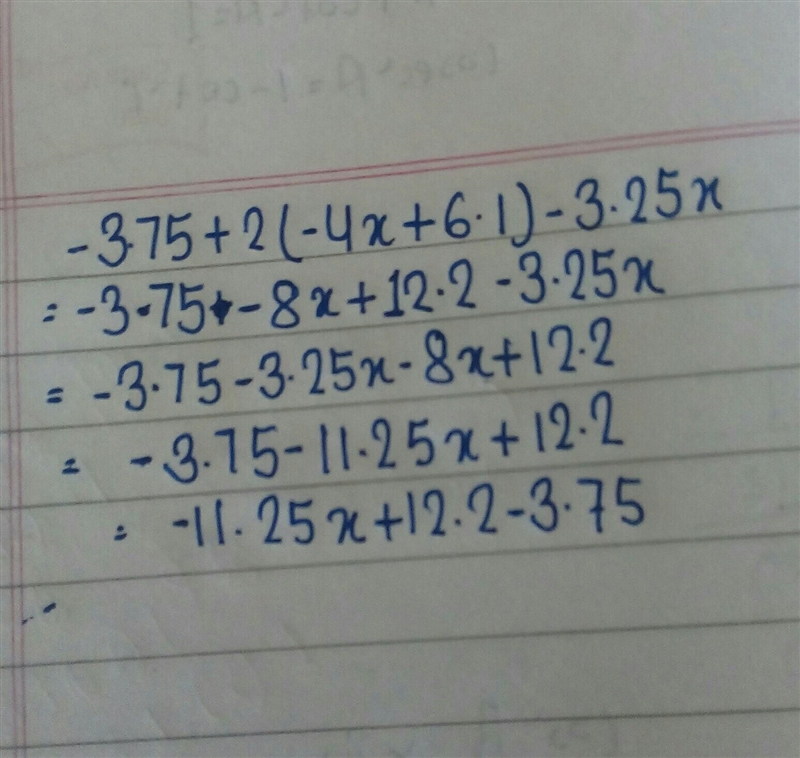 -3.75+2(-4x+6.1)-3.25x
= -3.75-8x+12.2-3.25x
= -3.75-3.25x-8x+12.2
= -3.75-11.25x+12.2
= -11.25x+12.2-3.75